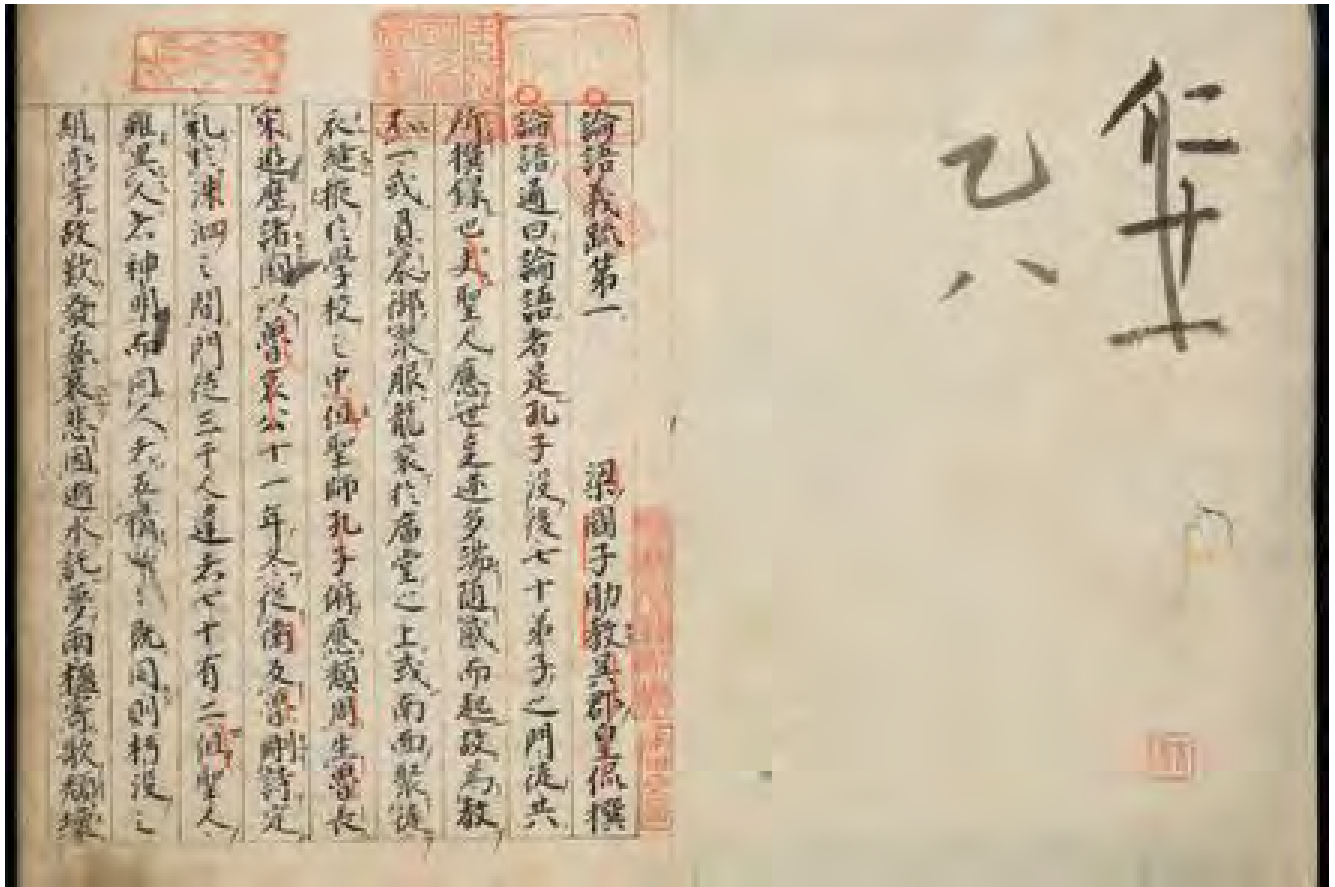 仁十一
乙八
論語義疏第一 梁國子助教吳郡皇侃撰
論語通曰論語者是孔子沒後七十弟子之門徒共
所撰錄也夫聖人應世事迹多端随感而起故為教
不一或負扆御衆服龍衮於廟堂之上或南面聚徒
衣縫掖於學校之中但聖師孔子符應頽周生魯長
宋遊歷諸國以魯哀公十一年冬從衛反魯刪詩定
礼於洙泗之間門徒三千人達者七十有二但聖人
雖異人者神明而同人者五情〻〻既同則朽没之
期亦等故歎發吾衰悲因逝水託夢兩楹寄歌頽壞